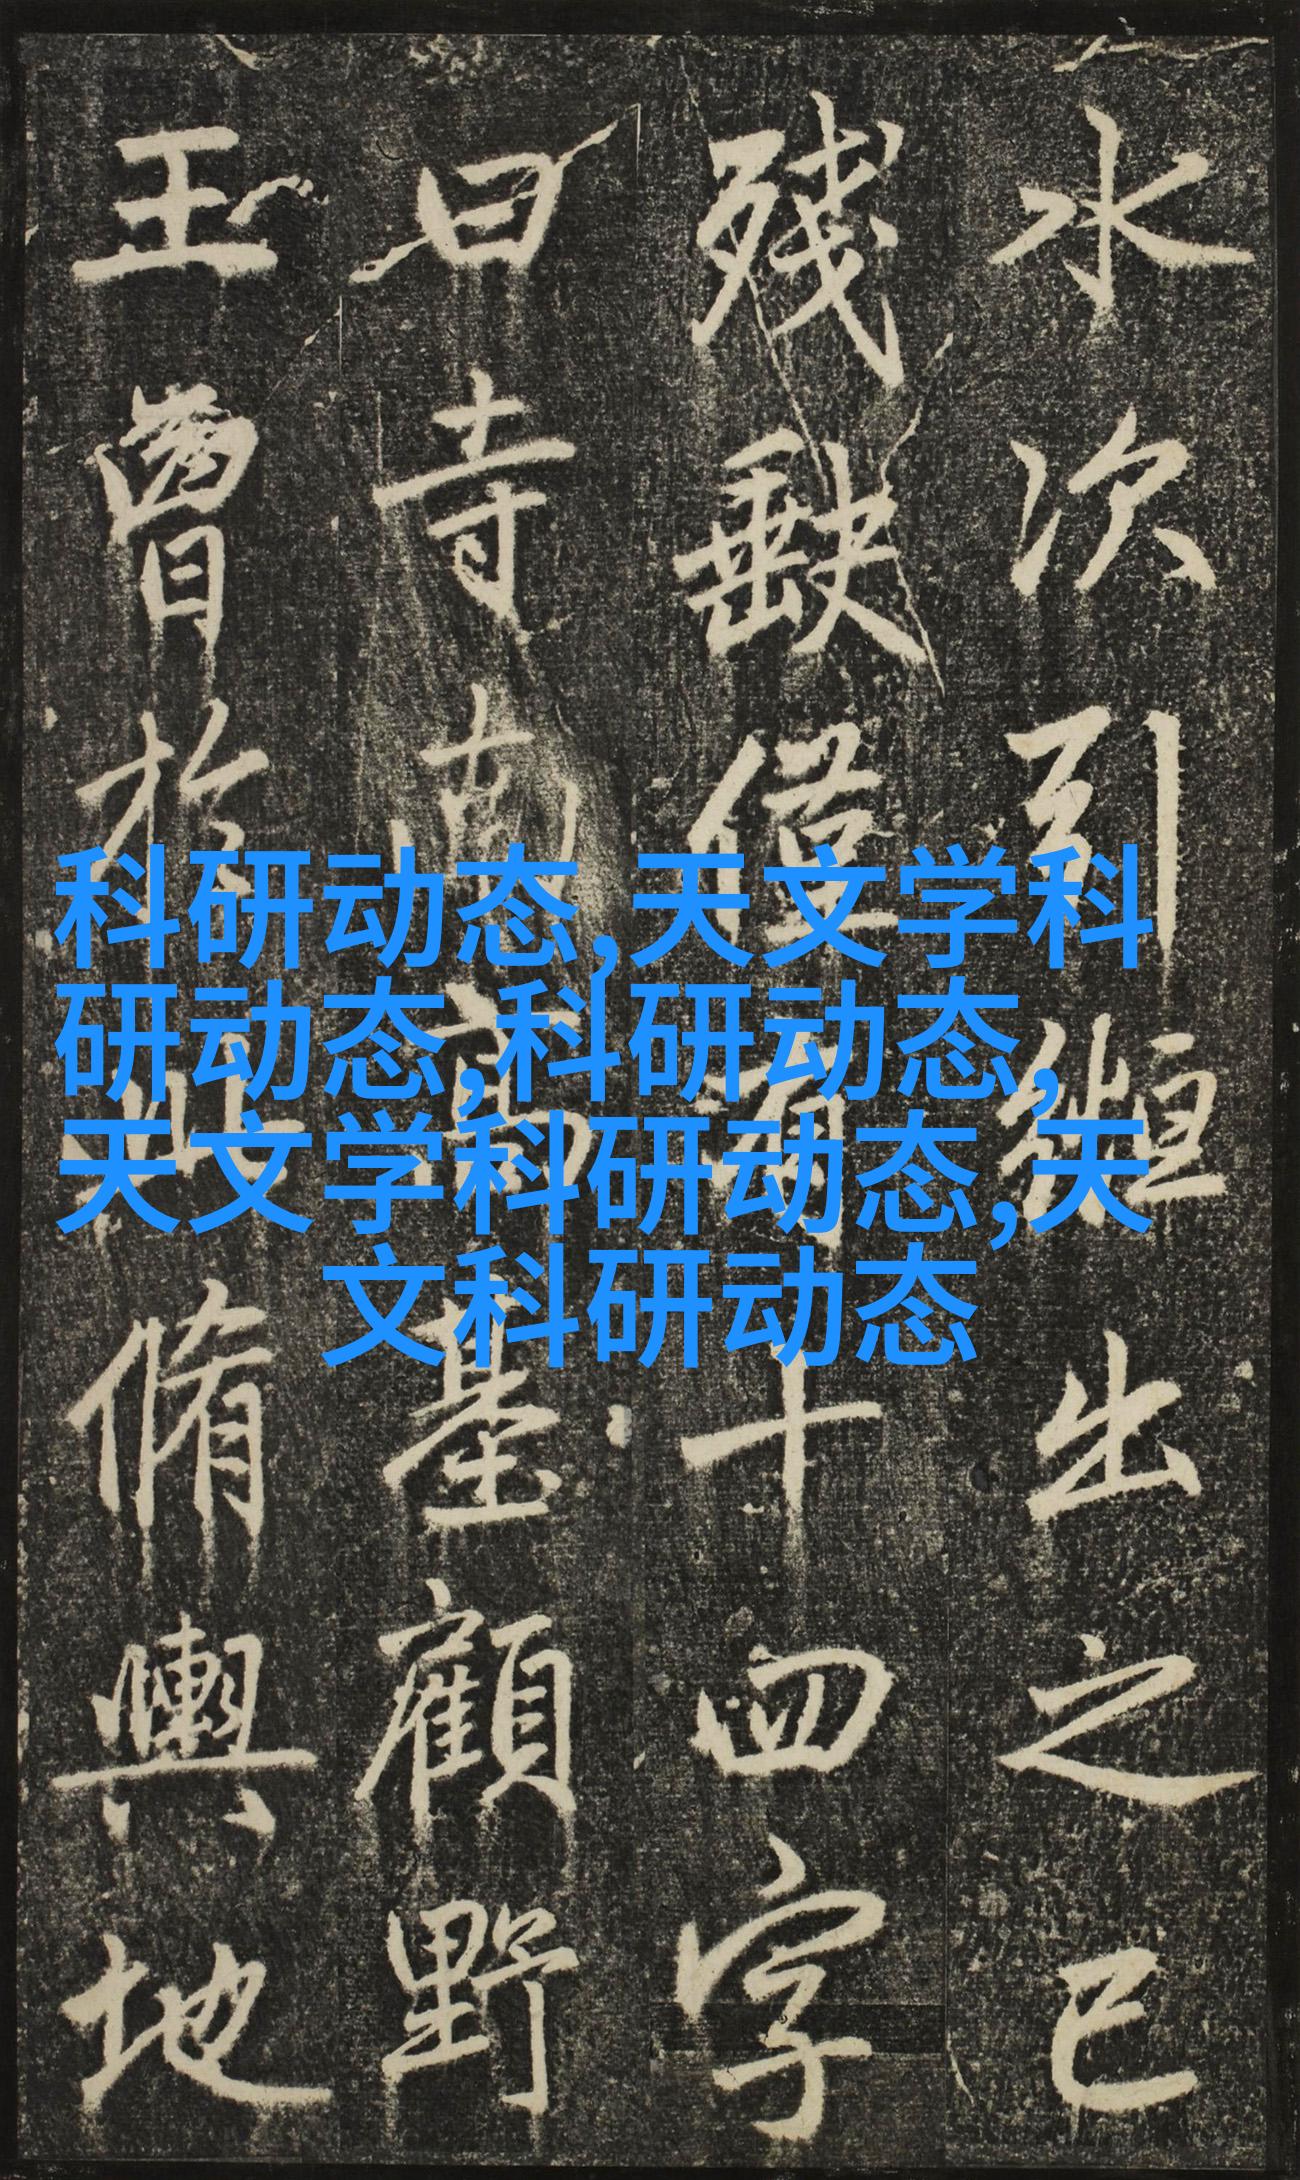 水次引縆出之已
残缺僅十四字
曰寺南高基顧野
王曾於此脩輿地
科研动态,天文学科
研动态,科研动态,
天文学科研动态,天
文科研动态